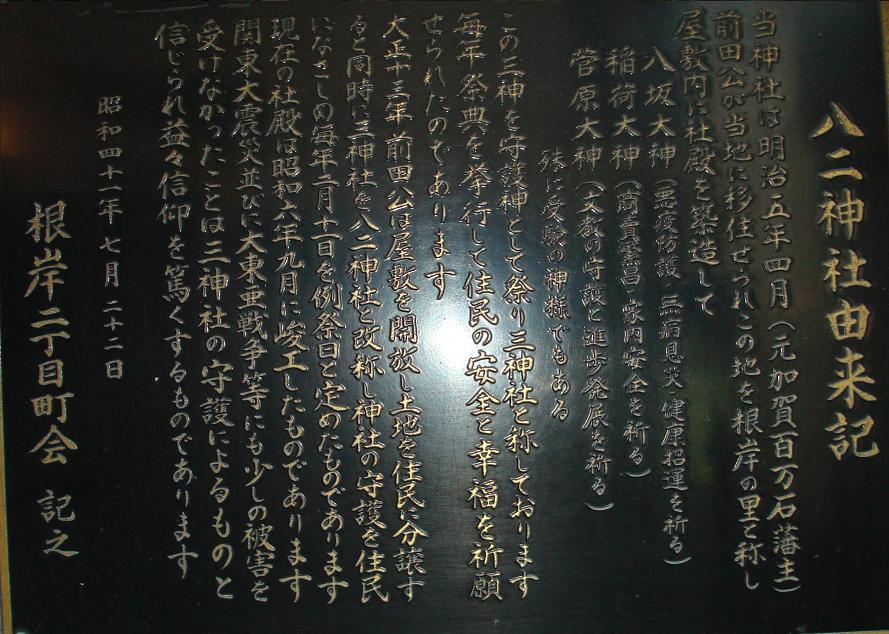 八二神社由来記
当神社は明治五年四月（元加賀百万石藩主）
前田公が当地に移住せられこの地を根岸の里と称し
屋敷内に社殿を築造して
八坂大神（悪疫防護・無病息災・健康招運を祈る）
稲荷大神（商賣繁昌・家内安全を祈る）
菅原大神（文教の守護と進歩発展を祈る）
殊に受験の神様でもある
この三神を守護神として祭り三神社と称しております
毎年祭典を挙行して住民の安全と幸福を祈願
せられたのであります
大正十三年前田公は屋敷を開放し土地を住民に分譲す
ると同時に三神社を八二神社と改称し神社の守護を住民
になさしめ毎年二月十一日を例祭日と定めたものであります
現在の社殿は昭和六年九月に峻工したものであります
関東大震災並びに大東亜戦争等にも少しの被害を
受けなかったことは三神社の守護によるものと
信じられ益々信仰を篤くするものであります
昭和四十一年七月二十二日
根岸二丁目町会 記之